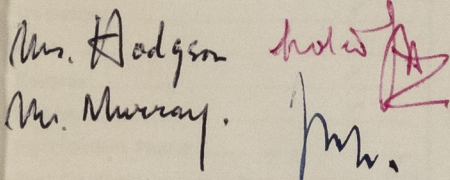 Mr. Hodgson noted
Mr. Murray.